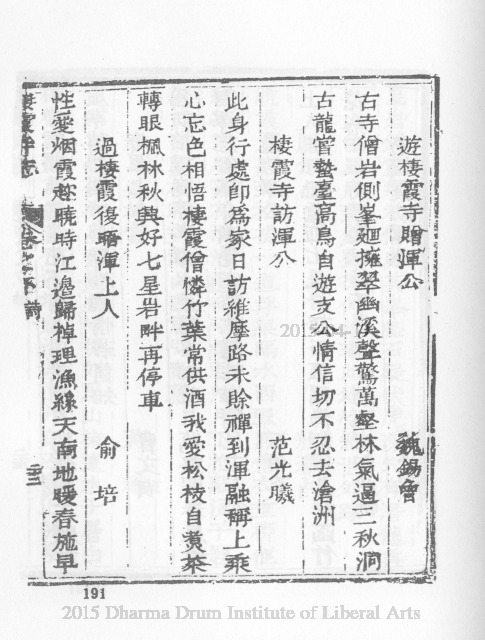 遊棲霞寺贈渾公 魏錫曾
古寺僧岩側峯廻擁翠幽溪聲驚萬壑林氣逼三秋洞
古龍嘗蟄臺高鳥自遊支公情信切不忍去滄洲
棲霞寺訪渾公 范光曦
此身行處卽爲家日訪維摩路未賒禪到渾融稱上乘
心忘色相悟棲霞僧憐竹葉常供酒我愛松枝自煑茶
轉眼楓林秋興好七星岩畔再停車
過棲霞後晤渾上人 俞培
性愛烟霞趂曉時江邉歸棹理漁綠天南地暖春施早
棲霞寺志 詩 三三
191
2015 Dharma Drum Institute of Liberal Arts